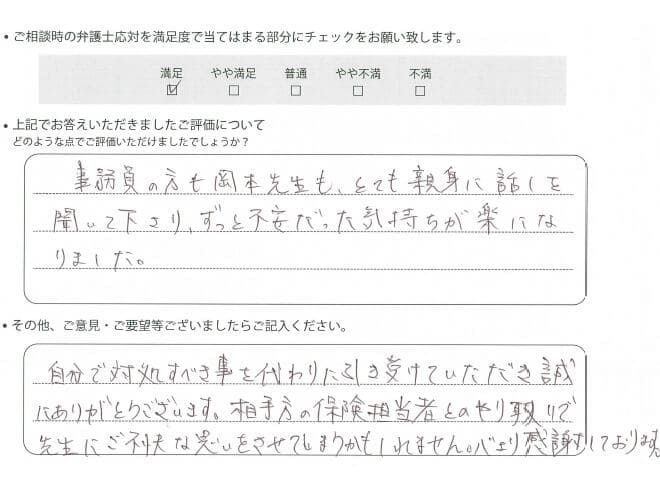 • ご相談時の弁護士応対を満足度で当てはまる部分にチェックをお願い致します。
満足 やや満足 普通 やや不満 不満
• 上記でお答えいただきましたご評価について
どのような点でご評価いただけましたでしょうか？
事務員の方も岡本先生も、とても親身に話しを
聞いて下さり、ずっと不安だった気持ちが楽にな
りました。
• その他、ご意見・ご要望等ございましたらご記入ください。
自分で対処すべき事を代わりに引き受けていただき誠
にありがとうございます。相手方の保険担当者とのやり取りで
先生にご不快な思いをさせてしまうかもしれません。感謝しております。